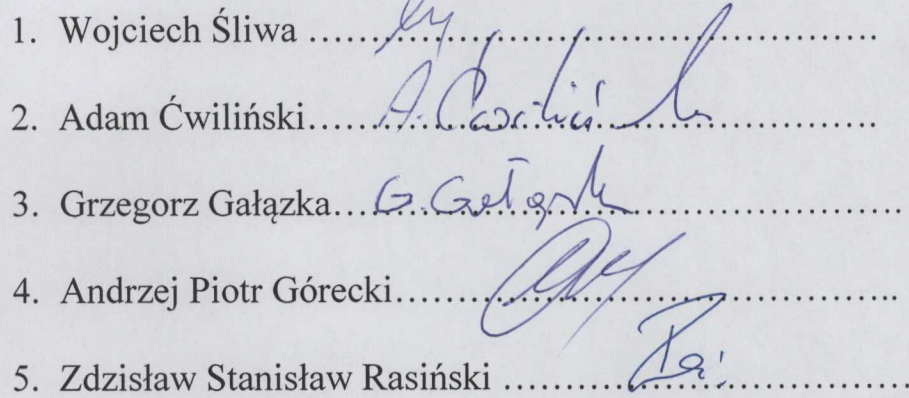 1. Wojciech Śliwa ..........................................
2. Adam Ćwiliński...A. Ćwiliński..........................
3. Grzegorz Gałązka...G. Gałązk..........................
4. Andrzej Piotr Górecki..................................
5. Zdzisław Stanisław Rasiński ...........................